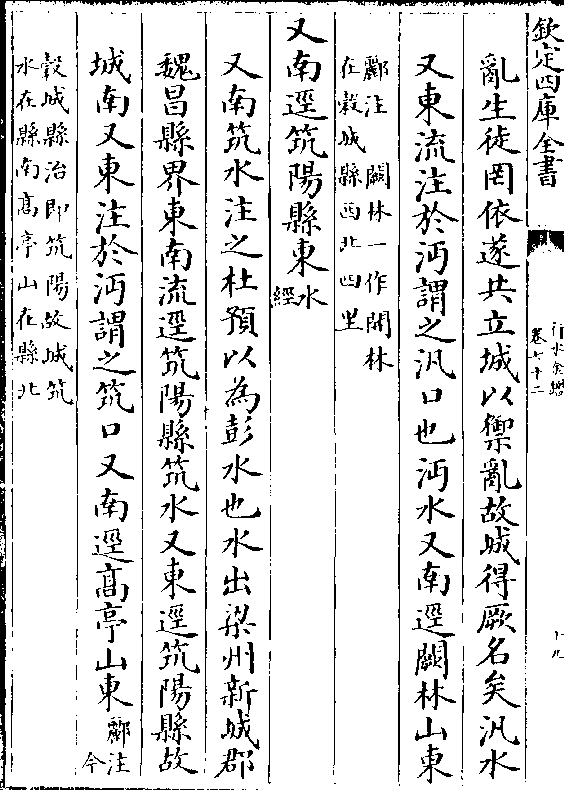 欽定四庫全書
行水金鑑
卷七十二
十九
亂生徒罔依遂共立城以禦亂故城得厥名矣汎水
又東流注於沔謂之汎口也沔水又南逕闕林山東
酈注 闕林一作開林
在穀城縣西北四里
又南逕筑陽縣東水經
又南筑水注之杜預以為彭水也水出梁州新城郡
魏昌縣界東南流逕筑陽縣筑水又東逕筑陽縣故
城南又東注於沔謂之筑口又南逕高亭山東酈注 今
穀城縣治即筑陽故城筑
水在縣南高亭山在縣北